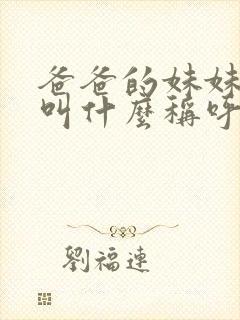 爸爸的妹妹
叫什麼稱呼
劉福連